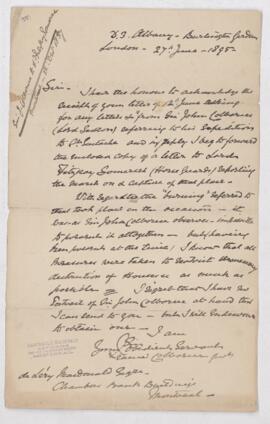 D.3. Albany - Burlington Gardens
London - 27th June - 1895 -
Sir - I have the honour to acknowledge the
receipt of your letter of June asking
for any letters from Sir John Colborne
(Lord Seaton) referring to his Expedition
to St Eustache and in reply I beg to forward
the enclosed copy of a letter to Lord
Fitzroy Somerset (Horse Guards) reporting
the march on & capture of that place -
With regard to the "burning" referred to
that took place on the occasion - it
was Sir John Colborne
to prevent it altogether - but
been present at the time, I know that all
measures were taken to restrict
destruction of Houses as much as
possible - I regret that I have no
Portrait of Sir John Colborne at hand that
I can send to you - but I will endeavour
to obtain one - I am
Sir
Your Obedient Servant
Colborne
de Léry Macdonald Esqre
Chambers Bank Buildings
Montreal -